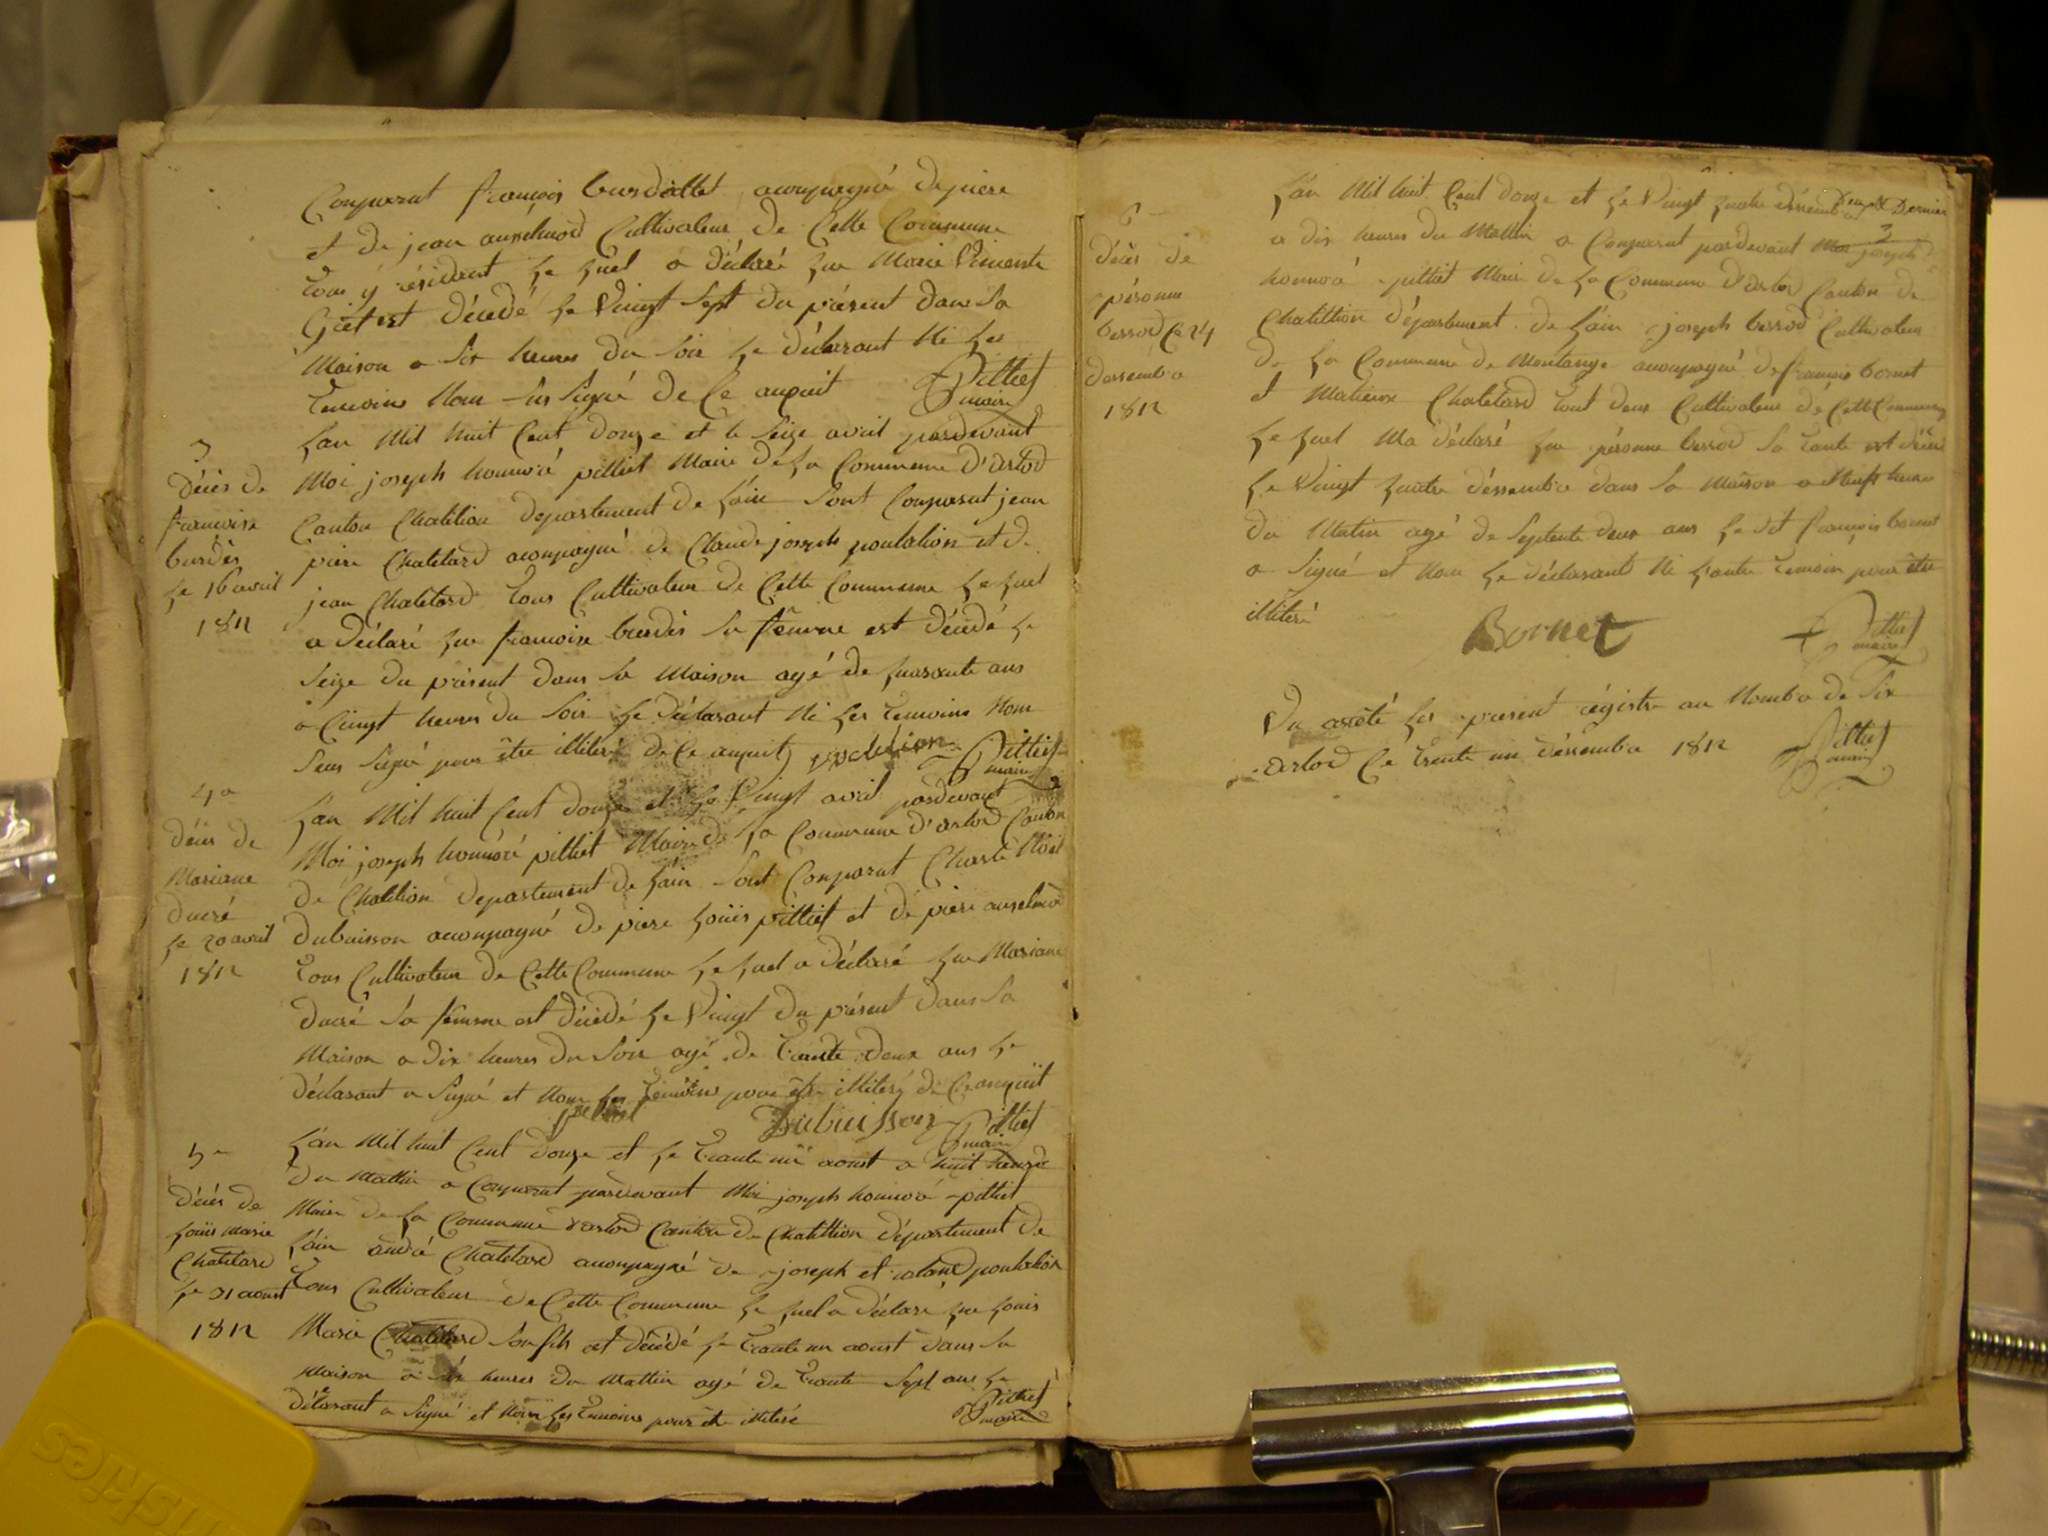 Comparut françois burdallet acompagné de piere
et de jean anselmod Cultivateur de Cette Commune
tous y résidant le quel a déclaré que Marie Vincente
est décedé le Vingt sept du présent dans sa
Maison a six heures du soir le déclarant Ni les
temoins Nom sus signé de ce anquit
Pilliet maire
3
décès de
françoise
burdès
le 16 avril
1812
L'an Mil huit Cent douze et le seize avril pardevant
Moi joseph honnoré pilliet Maire de la Commune D'arlod
Canton Chatilion departement de l'ain sont Comparut jean
piere Chatelard acompagné de Claude joseph poulalion et de
jean Chatelard tous Cultivateur de Cette Commune le quel
a déclaré que françoise burdès sa femme est décédé le
seize du présent dans sa Maison agé de quarante ans
a Cinqt heures du soir le déclarant Ni les temoins Nom
sus signé pour être illiteré de ce anquit
Pilliet maire
4e
décès de
Mariane
ducré
le 20 avril
1812
L'an Mil huit Cent douze et le Vingt avril pardevant
Moi joseph honnoré pilliet Maire de la Commune d'arlod Canton
de Chatilion departement de l'ain sont Comparut Charle Noël
dubuisson acompagné de piere Louis pilliet et de piere anselmod
tous Cultivateur de Cette Commune le quel a déclaré que Mariane
ducré sa femme est décédé le Vingt du présent dans sa
Maison a dix heures du soir agé de trante deux ans le
déclarant a signé et Nom les temoins pour être illiteré de ce anquit
Dubuisson
Pilliet maire
5e
décès de
Louis marie
Chatelard
le 31 aoust
1812
L'an Mil huit Cent douze et le trante un aoust a huit heures
du Mattin a Comparut pardevant Moi joseph honnoré pilliet
Maire de la Commune d'arlod Canton de Chatillion département de
l'ain andré Chatelard acompagné de joseph et poulalion
tous Cultivateur de Cette Commune le quel a déclaré que Louis
Marie Chatelard son fils est décédé le trante un aoust dans sa
maison a heures du Mattin agé de trante sept ans le
déclarant a signé et Nom les temoins pour être illiteré
Pilliet maire
6
décès de
péronne
berrod le 24
dessembre
1812
L'an Mil huit Cent douze et le Vingt quatre dessembre
a dix heures du Mattin a Comparut pardevant Moi joseph
honnoré pilliet Maire de la Commune d'arlod Canton de
Chatillion département de l'ain joseph berrod Cultivateur
de la Commune de Montange acompagné de françois bornet
et Matieux Chatelard tout deux Cultivateur de Cette Commune
le quel Ma déclaré que péronne berrod sa tante est décédé
le Vingt quatre dessembre dans sa Maison a Neuft heures
du Matin agé de septente deux ans le dit françois bornet
a signé et Nom le déclarant Ni l'autre temoin pour être
illiteré
Bornet
Pilliet maire
Vu arrêté les present régistre au Nombre de Six
arlod Ce trente un dessembre 1812
Pilliet maire